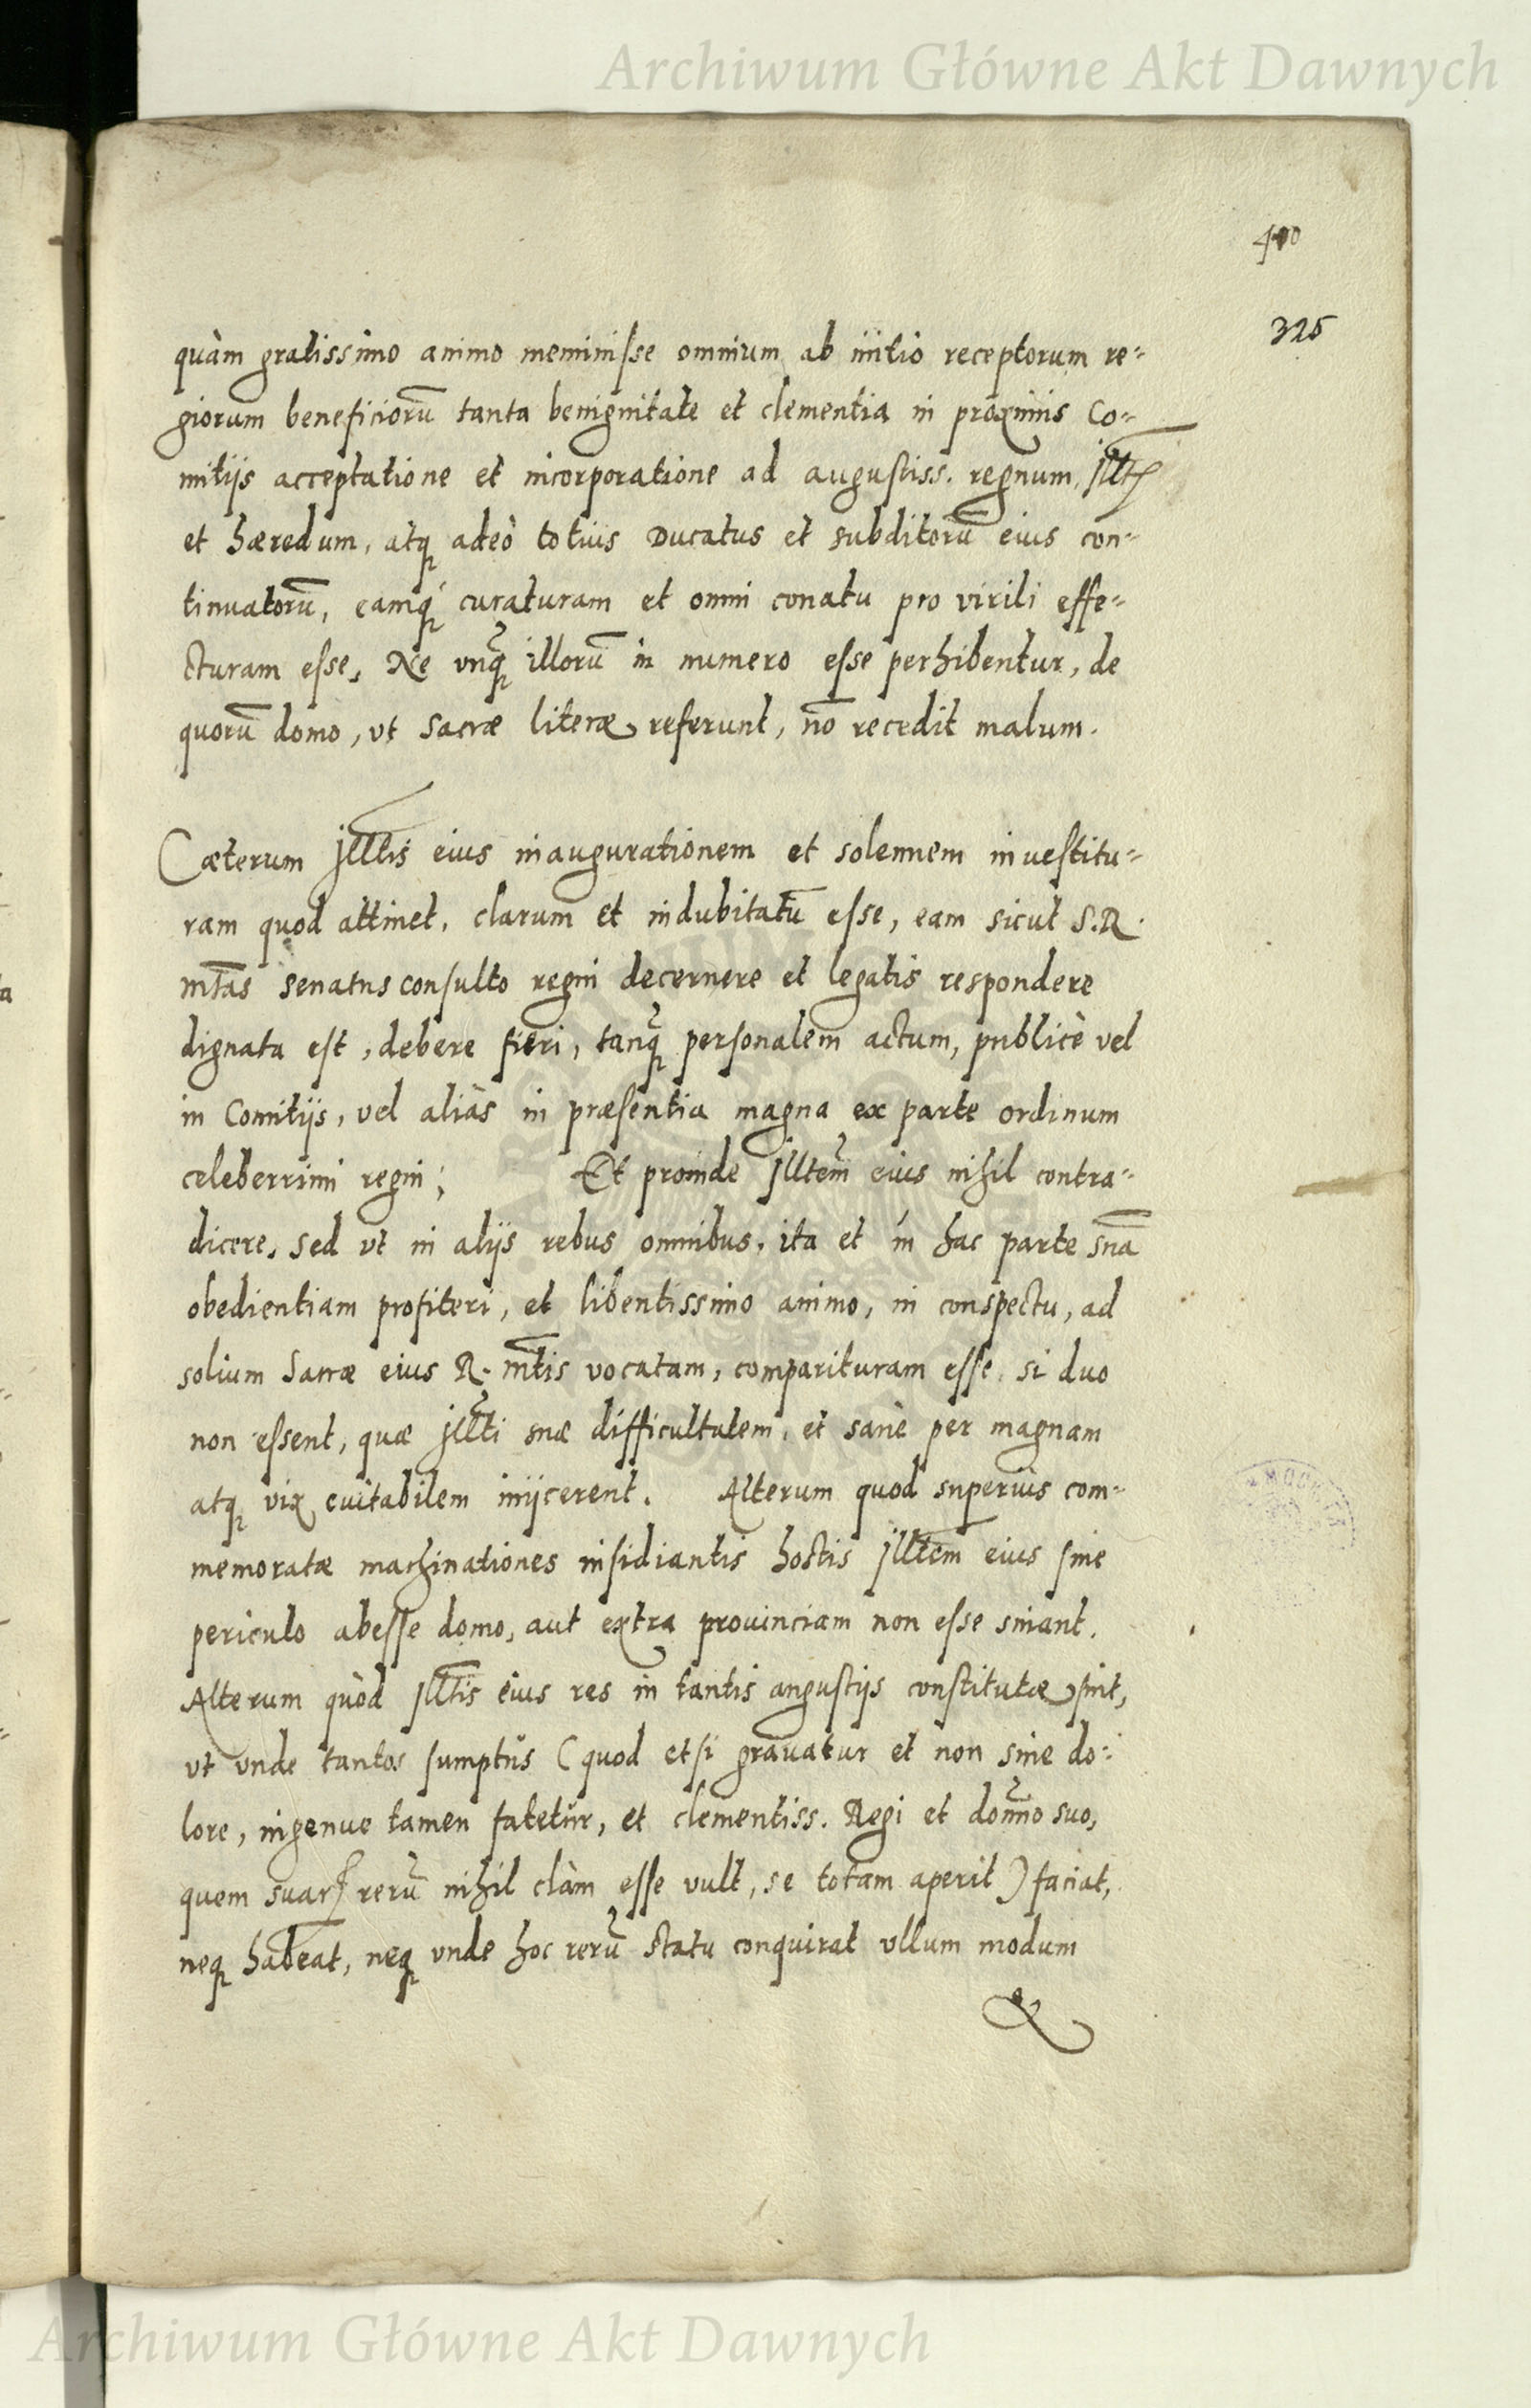 Archiwum Główne Akt Dawnych
325
quàm gratissimo animo meminisse omnium ab initio receptorum re-
giorum beneficiorū tanta benignitate et clementia in proximis Co-
mitijs acceptatione et incorporatione ad augustiss. regnum,
et hæredum, atq adeò totius Ducatus et subditorū eius con-
tinuatorū, eamq́ curaturam et omni conatu pro virili effe-
cturam esse, Ne vnq̄ illorū in numero esse perhibentur, de
quorū domo, vt sacræ literæ referunt, nō recedit malum.
Cæterum Jlltis eius inaugurationem et solennem inuestitu-
ram quod attinet, clarum et indubitatū esse, eam sicut S. R.
mtas senatus consulto regni decernere et legatis respondere
dignata est, debere fieri, tanq̄ personalem actum, publicè vel
in Comitijs, vel aliàs in præsentia magna ex parte ordinum
celeberrimi regni; Et proinde Jlltem eius nihil contra-
dicere, sed vt in alijs rebus omnibus, ita et in hac parte snā
obedientiam profiteri, et libentissimo animo, in conspectu, ad
solium Sacræ eius R. mtis vocatam, comparituram esse, si duo
non essent, quæ Jllti suæ difficultatem, et sanè per magnam
atq vix euitabilem inijcerent. Alterum quod superius com-
memoratæ machinationes insidiantis hostis Jlltem eius sine
periculo abesse domo, aut extra prouinciam non esse sinant.
Alterum quòd Jlltis eius res in tantis angustijs constitutæ sint,
vt vnde tantos sumptus (quod etsi grauatur et non sine do-
lore, ingenue tamen fatetur, et clementiss. Regi et domno suo,
quem suarꝝ rerū nihil clàm esse vult, se totam aperit) faciat,
neq habeat, neq vnde hoc rerū statu conquirat vllum modum
Archiwum Główne Akt Dawnych